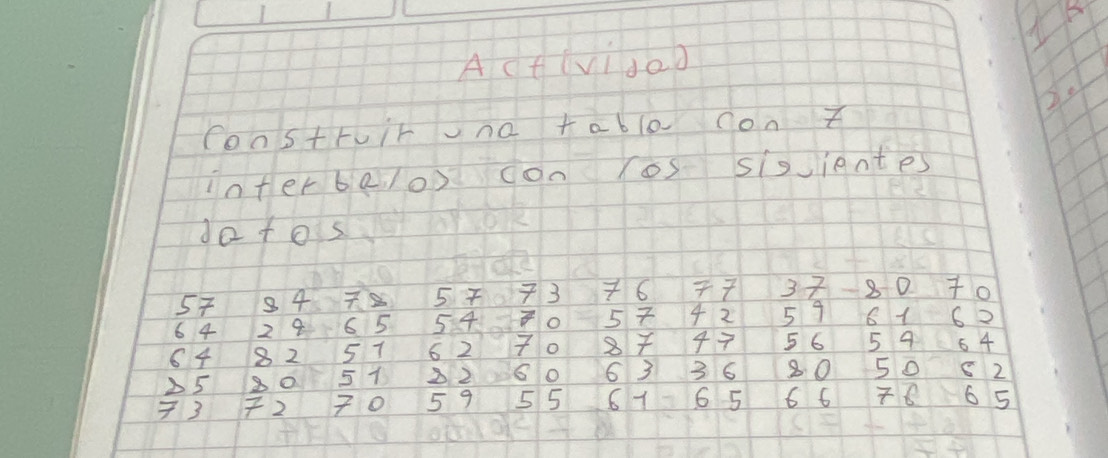 Actividad
Construir una tabla con 7
interbalos con los siguientes
datos
57 84 78 57 73 76 77 37 80 70
64 29 65 54 70 57 42 59 61 62
64 82 51 62 70 87 47 56 59 64
85 80 51 82 60 63 36 80 50 62
73 72 70 59 55 61 65 66 76 65